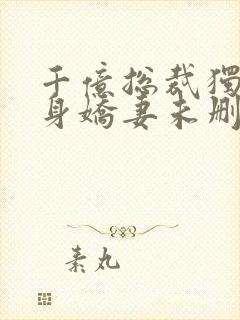 千億總裁獨
身嬌妻未刪
素丸